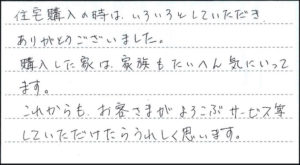 住宅購入の時は、いろいろとしていただき
ありがとうございました。
購入した家は、家族もたいへん気にいって
ます。
これからも、お客さまがよろこぶサービス等
していただけたらうれしく思います。